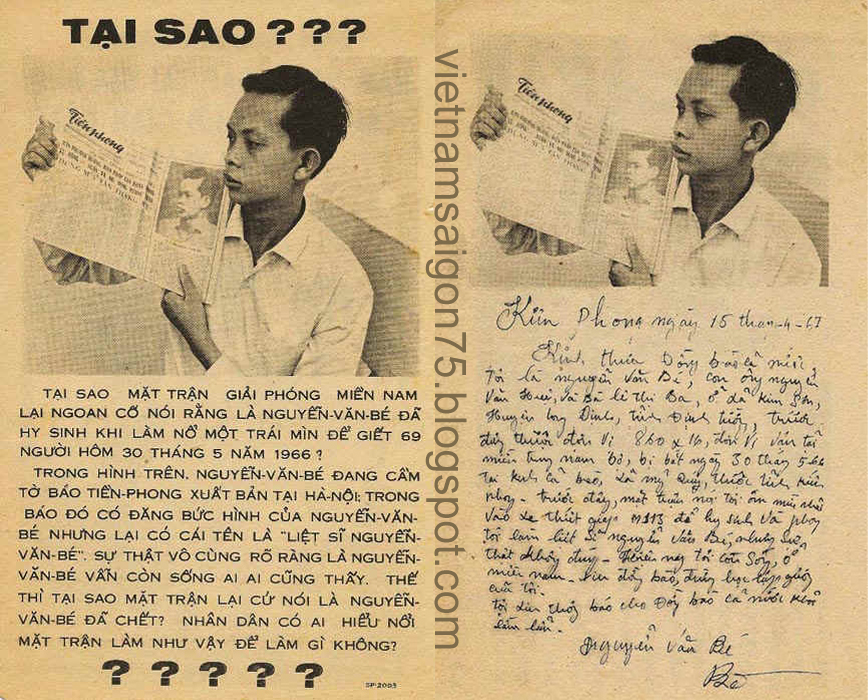 TẠI SAO ? ? ?
Tiền phong
TẠI SAO MẶT TRẬN GIẢI PHÓNG MIỀN NAM
LẠI NGOAN CỐ NÓI RẰNG LÀ NGUYỄN-VĂN-BÉ ĐÃ
HY SINH KHI LÀM NỔ MỘT TRÁI MÌN ĐỂ GIẾT 69
NGƯỜI HÔM 30 THÁNG 5 NĂM 1966 ?
TRONG HÌNH TRÊN, NGUYỄN-VĂN-BÉ ĐANG CẦM
TỜ BÁO TIỀN-PHONG XUẤT BẢN TẠI HÀ-NỘI; TRONG
BÁO ĐÓ CÓ ĐĂNG BỨC HÌNH CỦA NGUYỄN-VĂN-
BÉ NHƯNG LẠI CÓ CÁI TÊN LÀ "LIỆT SĨ NGUYỄN-
VĂN-BÉ". SỰ THẬT VÔ CÙNG RÕ RÀNG LÀ NGUYỄN-
VĂN-BÉ VẪN CÒN SỐNG AI AI CŨNG THẤY. THẾ
THÌ TẠI SAO MẶT TRẬN LẠI CỨ NÓI LÀ NGUYỄN-
VĂN-BÉ ĐÃ CHẾT? NHÂN DÂN CÓ AI HIỂU NỔI
MẶT TRẬN LÀM NHƯ VẬY ĐỂ LÀM GÌ KHÔNG?
? ? ? ? ?
SP-2003
vietnamsaigon75.blogspot.com
Tiền phong
ngày 15 tháng-4-67
Kính thưa Đồng bào cả nước
Tôi là nguyễn Văn Bé, con ông nguyễn
Văn và Bà lê thị Ba, ở xã kim Sơn,
Huyện long Định, tỉnh Định tường, trước
đây thuộc đơn Vị 860 x 16, đơn Vị Vận tải
miền trung nam bộ, bị bắt ngày 30 tháng 5-66
tại mỹ Quý, thuộc tỉnh kiến
phong - trước đây, một nói tôi ôm mìn
Vào xe thiết giáp M113 để hy sinh Và phong
tôi làm liệt sĩ nguyễn Văn Bé nhưng
thật không đúng - Hiện nay tôi còn Sống, ở
miền nam - đồng bào, đừng học tập
của tôi.
tôi thông báo cho Đồng bào cả nước khỏi
lầm lẫn.
nguyễn Văn Bé
Bé